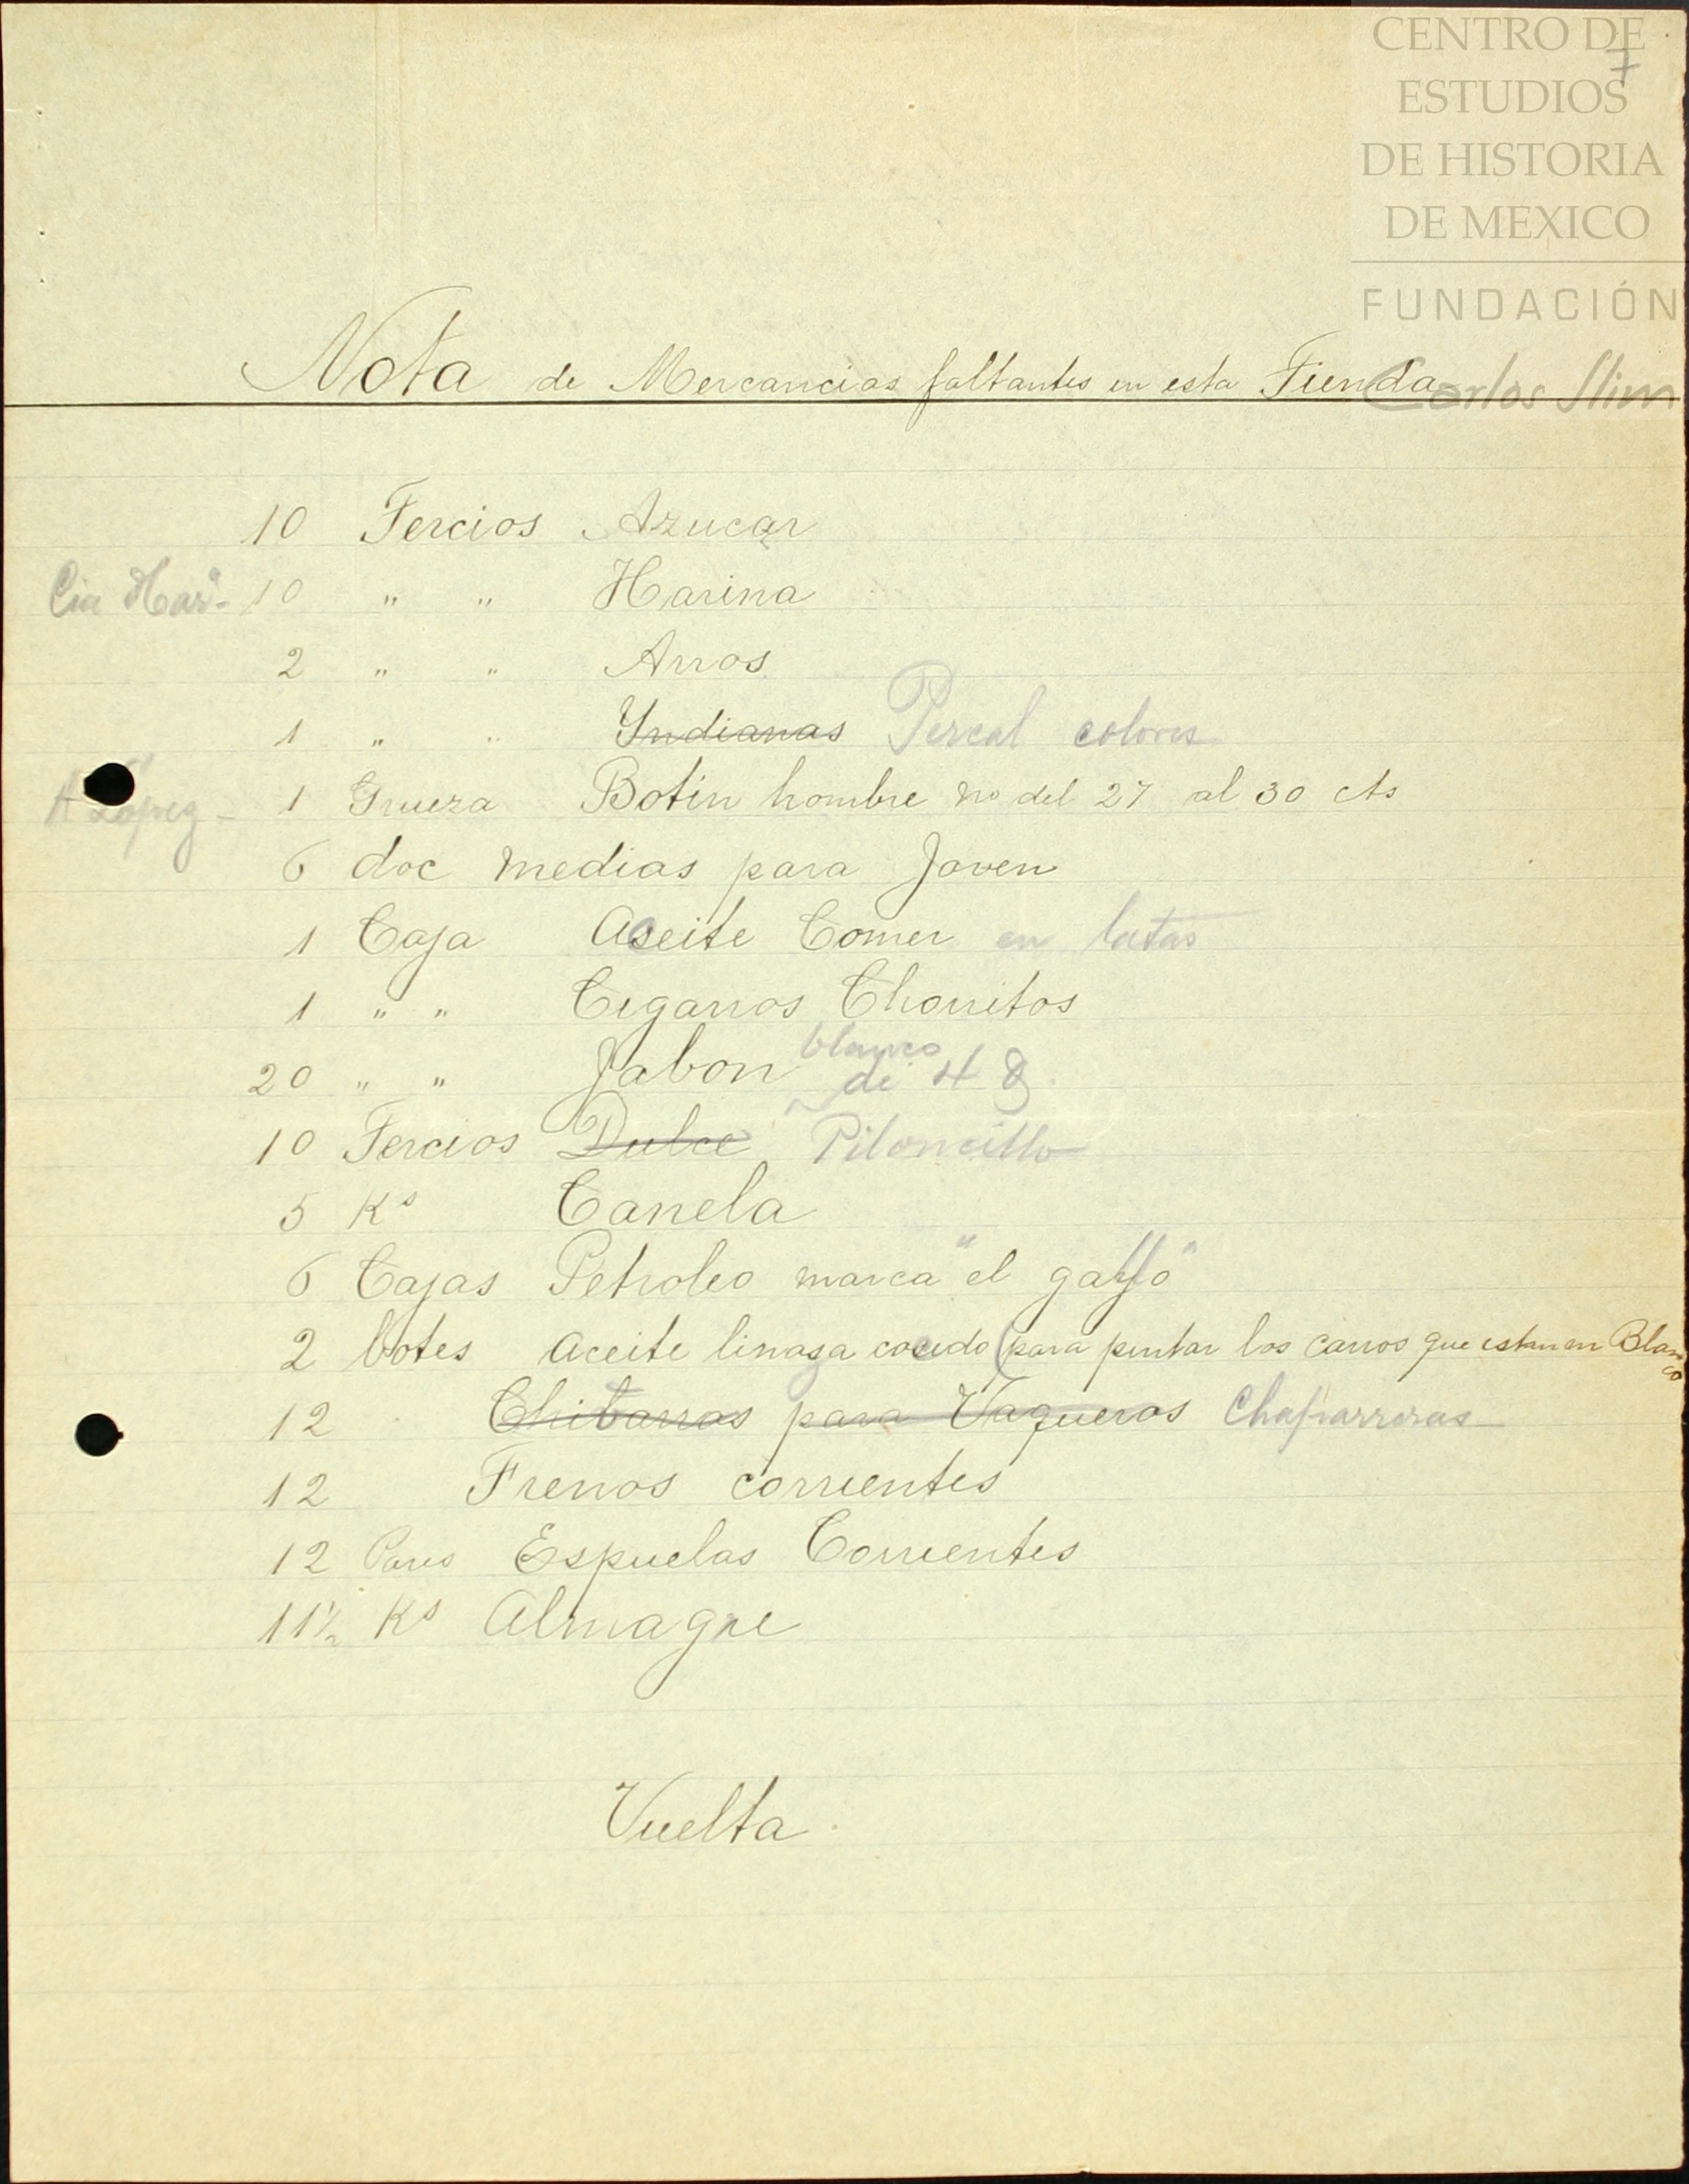 CENTRO DE
ESTUDIOS
DE HISTORIA
DE MEXICO
FUNDACIÓN
Carlos Slim
7
Nota de Mercancias faltantes en esta Tienda
10 Tercios Azucar
Cia Har̃a- 10 " " Harina
2 " " Arros
1 " " Yndianas Percal colores
A López - 1 Grueza Botin hombre no del 27 al 30 cts
6 doc medias para Joven
1 Caja Aceite Comer en latas
1 " " Cigarros Chorritos
20 " " Jabon blanco de 48
10 Tercios Dulce Piloncillo
5 Ks Canela
6 Cajas Petroleo marca "el gallo"
2 botes Aceite linaza cocido (para pintar los carros que estan en Blanco
12 Chibarras para Vaqueros Chaparreras
12 Frenos corrientes
12 Pares Espuelas Corrientes
11½ Ks Almagre
Vuelta